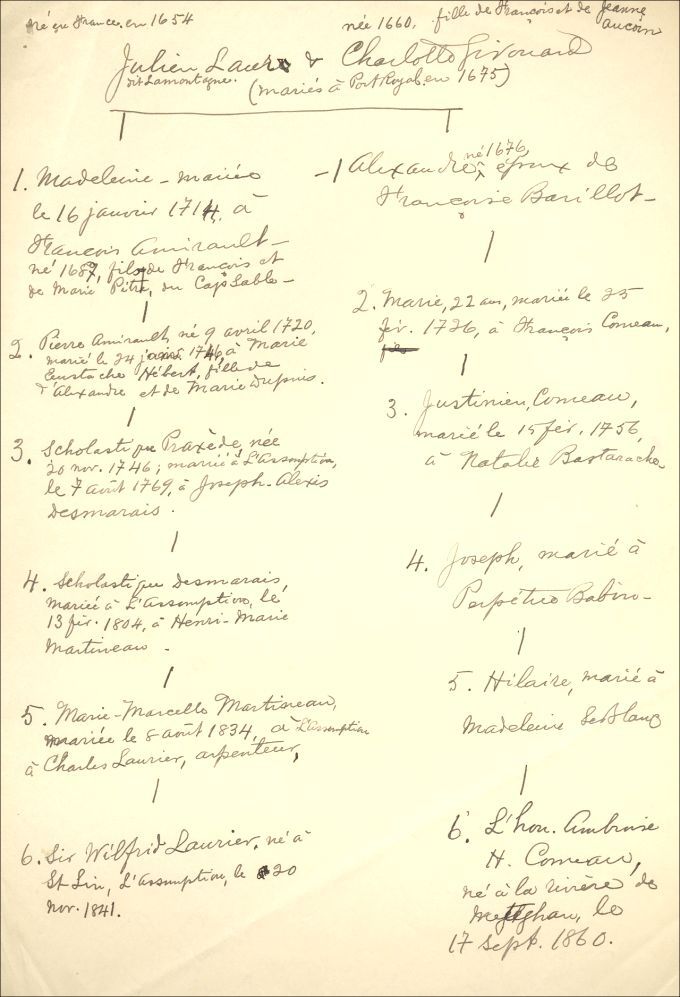 né en France en 1654
née 1660, fille de François et de Jeanne
Aucoin
Julien Laur & Charlotte Girouard
dit Lamontagne. (mariés à Port Royal en 1675)
1. Madeleine - mariée
le 16 janvier 1714, à
François Amirault -
né 1687, fils de François et
de Marie Pitre, du Cap Sable -
2. Pierre Amirault, né 9 avril 1720,
marié le 24 1746, à Marie
Eustache Hébert, fille de
d'Alexandre et de Marie Dupuis.
3. Scholastique Praxède, née
20 nov. 1746; mariée à L'Assomption,
le 7 août 1769, à Joseph-Alexis
Desmarais.
4. Scholastique Desmarais,
mariée à L'Assomption, le
13 fév. 1804, à Henri-Marie
Martineau -
5. Marie-Marcelle Martineau,
mariée le 8 août 1834, à L'Assomption
à Charles Laurier, arpenteur,
6. Sir Wilfrid Laurier, né à
St Lin, L'Assomption, le 20
nov. 1841.
-1 Alexandre, né 1676, époux de
Françoise Barillot -
2. Marie, 22 ans, mariée le 25
fév. 1726, à François Comeau,
fils
3. Justinien Comeau,
marié le 15 fév. 1756,
à Natalie Bastarache -
4. Joseph, marié à
Perpétue Babin -
5. Hilaire, marié à
Madeleine LeBlanc
6. L'hon. Ambroise
H. Comeau,
né à la rivière de
Meteghan, le
17 sept. 1860.